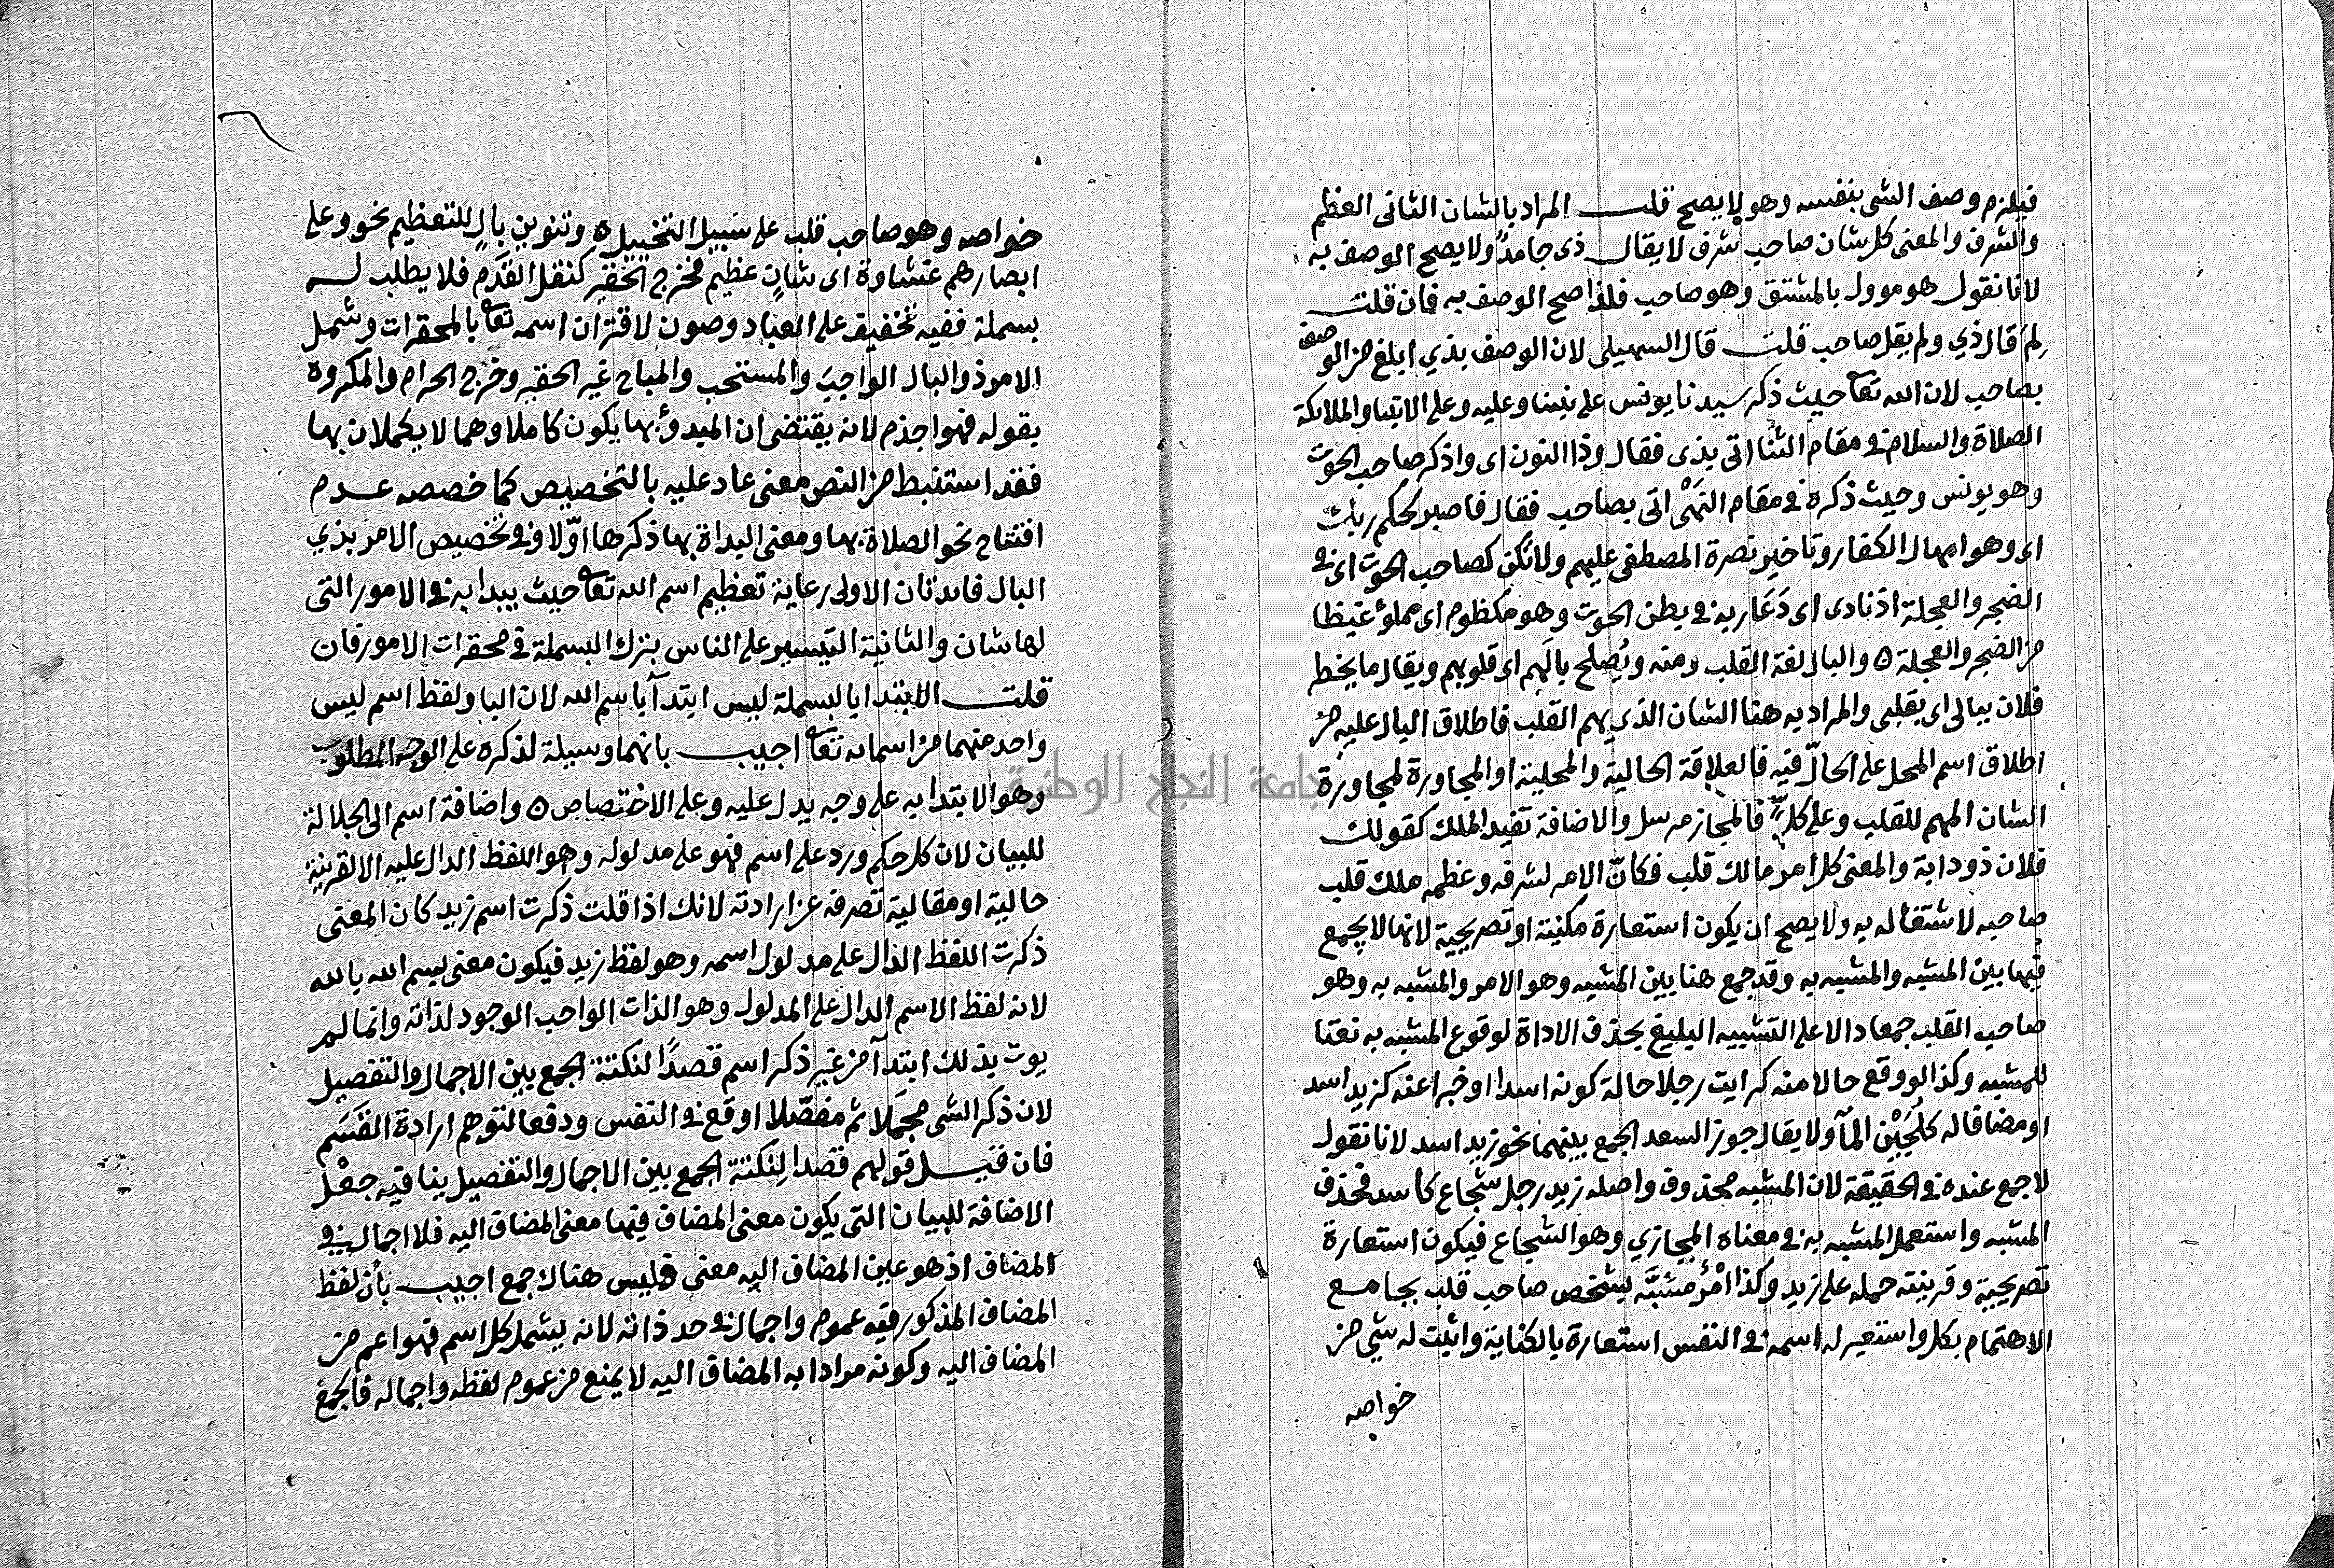 فيلزم وصف الشى بنفسه وهو لا يصح قلت المراد بالشان الثانى العظم
والشرف والمعنى كل شان صاحب شرف لا يقال ذى جامد ولا يصح الوصف به
لانا نقول هو موول بالمشتق وهو صاحب فلذا صح الوصف به فان قلت
لِمَ قال ذي ولم يقل صاحب قلت قال السهيلى لان الوصف بذي ابلغ من الوصف
بصاحب لان الله تعا حيث ذكر سيدنا يونس على نبينا وعليه وعلى الانبيا والملائكة
الصلاة والسلام فى مقام الثنا اتى بذى فقال وذا النون اى واذكر صاحب الحوت
وهو يونس وحيث ذكره فى مقام النَهْى اتى بصاحب فقال فاصبر لحكم ربك
اى وهو امهال الكفار وتاخير نصرة المصطفى عليهم ولا تكن كصاحب الحوت اى فى
الضجر والعجلة اذ نادى اى دَعَا ربه فى بطن الحوت وهو مكظوم اى مملوء غيظا
من الضجر والعجلة ه والبال لغة القلب ومنه ويُصلح بالَهم اى قلوبهم ويقال ما يخطر
فلان ببالى اى بقلبى والمراد به هنا الشان الذي يهم القلب فاطلاق البال عليه من
اطلاق اسم المحل على الحالّ فيه فالعلاقة الحالية والمحلية او المجاورة لمجاورة
الشان المهم للقلب وعلى كلٍّ فالمجاز مرسل والاضافة تفيد الملك كقولك
فلان ذو دابة والمعنى كل امر مالك قلب فكانّ الامر لشرفه وعظمه ملك قلب
صاحبه لاشتغاله به ولا يصح ان يكون استعارة مكنية او تصريحية لانها لا يجمع
فيها بين المشبه والمشبه به وقد جمع هنا بين المشبه وهو الامر والمشبه به وهو
صاحب القلب جمعا دالا على التشبيه البليغ بحذف الاداة لوقوع المشبه به نعتا
للمشبه وكذا لو وقع حالا منه كرايت رجلا حالة كونه اسدا او خبرا عنه كزيد اسد
او مضافا له كلُجَيْن المآ ولا يقال جوز السعد الجمع بينهما نحو زيد اسد لانا نقول
لا جمع عنده فى الحقيقة لان المشبه محذوف واصله زيد رجل شجاع كاسد فحذف
المشبه واستعمل المشبه به فى معناه المجازي وهو الشجاع فيكون استعارة
تصريحية وقرينته حمله على زيد وكذا امْرُ مشبَّه بشخص صاحب قلب بجامع
الاهتمام بكل واستعير له اسمه فى النفس استعارة بالكناية واثبت له شي من
خواصه
خواصه وهو صاحب قلب على سَبيل التخييل ه وتنوين بالٍ للتعظيم نحو وعلى
ابصارهم غشاوة اى شانٍ عظيم فخرج الحقير كنقل القَدَم فلا يطلب له
بسملة ففيه تخفيف على العباد وصون لاقتران اسمه تعا بالمحقرات وشمل
الامر ذو البال الواجبَ والمستحب والمباح غير الحقير وخرج الحرام والمكروه
بقوله فهو اجذم لانه يقتضى ان المبدوء بها يكون كاملا وهما لا يكملان بها
فقد استنبط من النص معنى عاد عليه بالتخصيص كما خصصه عدم
افتتاح نحو الصلاة بها ومعنى البداة بها ذكرها اوّلا وفى تخصيص الامر بذي
البال فائدتان الاولى رعاية تعظيم اسم الله تعا حيث يبدا به فى الامور التى
لها شان والثانية التيسير على الناس بترك البسملة فى محقرات الامور فان
قلت الابتدا بالبسملة ليس ابتدآ باسم الله لان البا ولفظ اسم ليس
واحد منهما من اسمائه تعا اجيب بانهما وسيلة لذكره على الوجه المطلوب
وهو الابتدا به على وجه يدل عليه وعلى الاختصاص ه واضافة اسم الى الجلالة
للبيان لان كل حكم ورد على اسم فهو على مدلوله وهو اللفظ الدال عليه الا لقرينة
حالية او مقالية تصرفه عن ارادته لانك اذا قلت ذكرت اسم زيد كان المعنى
ذكرت اللفظ الدال على مدلول اسمه وهو لفظ زيد فيكون معنى بسم الله بالله
لانه لفظ الاسم الدال على المدلول وهو الذات الواجب الوجود لذاته وانما لم
يوت بذلك ابتدآ من غير ذكر اسم قصدًا لنكتة الجمع بين الاجمال والتفصيل
لان ذكر الشى مجمَلا ثم مفصّلا اوقع فى النفس ودفعا لتوهم ارادة القَسَم
فان قيل قولهم قصدا لِنكتة الجمع بين الاجمال والتفصيل ينافيه جعْل
الاضافة للبيان التى يكون معنى المضاف فيها معنى المضاف اليه فلا اجمال فى
المضاف اذ هو عين المضاف اليه معنى فليس هناك جمع اجيب بأن لفظ
المضاف المذكور فيه عموم واجمال فى حد ذاته لانه يشمل كل اسم فهو اعم من
المضاف اليه وكونه مرادا به المضاف اليه لا يمنع من عموم لفظه واجماله فالجمع
جامعة النجاح الوطنية